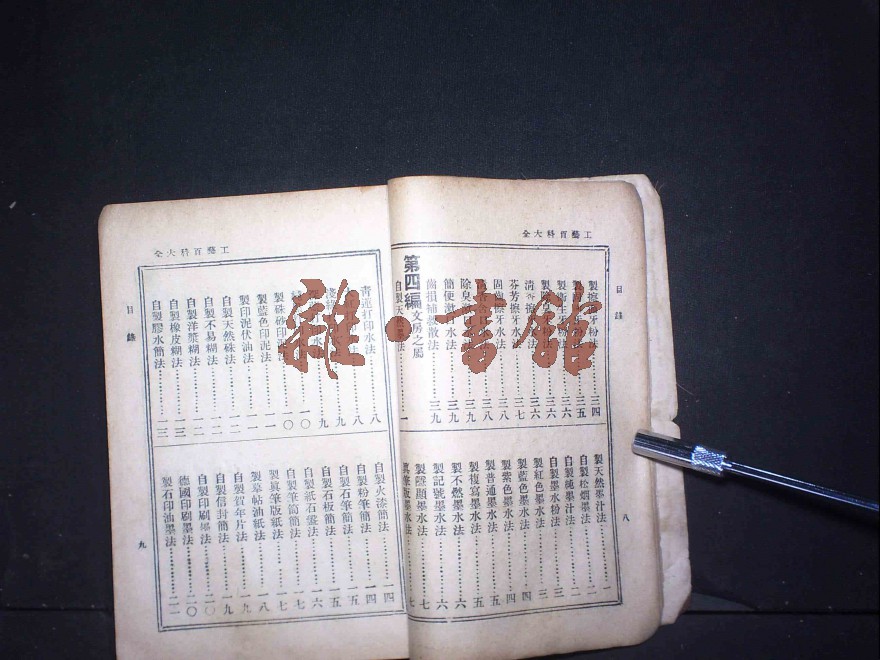 工藝百科大全
目錄
製擦牙粉法……三四
製衛生牙粉法……三五
芬芳擦牙水法……三七
固齒擦牙水法……三八
簡便漱牙水法……三九
齒損補救散法……三九
第四編 文房之屬
自製天然墨法……一
製天然墨汁法……一
自製松烟墨法……二
自製純墨汁法……二
自製墨水粉法……三
製紅色墨水法……三
製藍色墨水法……四
製紫色墨水法……四
製普通墨水法……五
製複寫墨水法……五
製不燃墨水法……六
製記號墨水法……六
製隱顯墨水法……七
真筆版墨水法……七
八
工藝百科大全
目錄
青蓮打印水法……八
製硃砂印泥法……一〇
製藍色印泥法……一一
製印泥伏油法……一一
自製天然硃法……一二
自製不易糊法……一二
自製洋漿糊法……一二
自製橡皮糊法……一三
自製膠水簡法……一三
自製火漆簡法……一四
自製粉筆簡法……一四
自製石筆簡法……一五
自製石板簡法……一五
自製紙石盤法……一六
自製筆筒簡法……一七
製真筆版紙法……一七
製臺帖油紙法……一八
自製賀年片法……一九
自製信封簡法……一九
自製印刷墨法……二〇
德國印刷墨法……二〇
製石印油墨法……二二
九
雜·書館